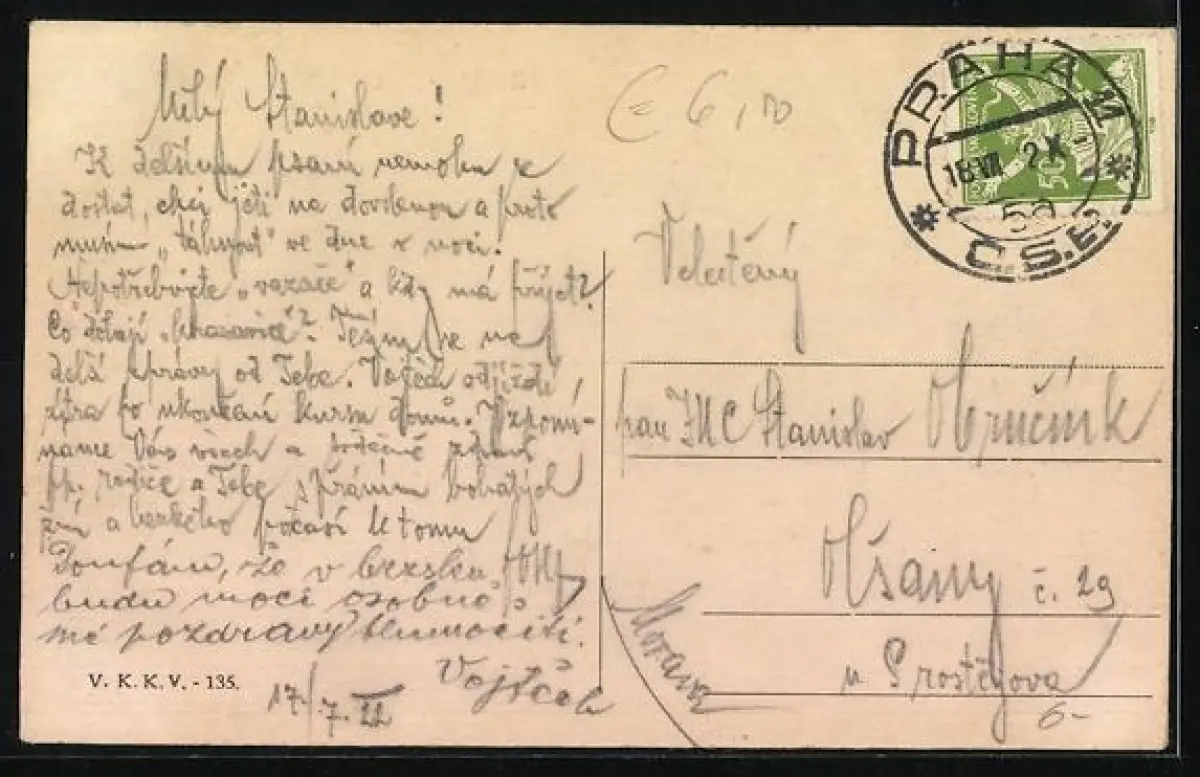 Milý Stanislave!
K delšímu psaní nemohu se
dostat, chci jeti na dovolenou a proto
musím „táhnout" ve dne v noci.
Nepotřebujete „vazače" a kdy má přijet?
Co dělají
Těším se na
delší zprávy od Tebe. Vojtěch odjíždí
zítra po ukončení kursu domů. Vzpomí-
náme Vás všech a srdečně zdraví
pp. rodiče a Tebe s přáním bohatých
žní a hezkého počasí k tomu
Doufám, že v brzsku
budu moci osobně
mé pozdravy tlumočiti.
Vojtěch
17/7. 22
V. K. K. V. - 135.
€ 6,00
PRAHA 11
16 VII 2X
5a
Č.S.P.
50
Velectěný
pan JUC Stanislav Obručník
Olšany č. 29
u Prostějova
Morava
6-